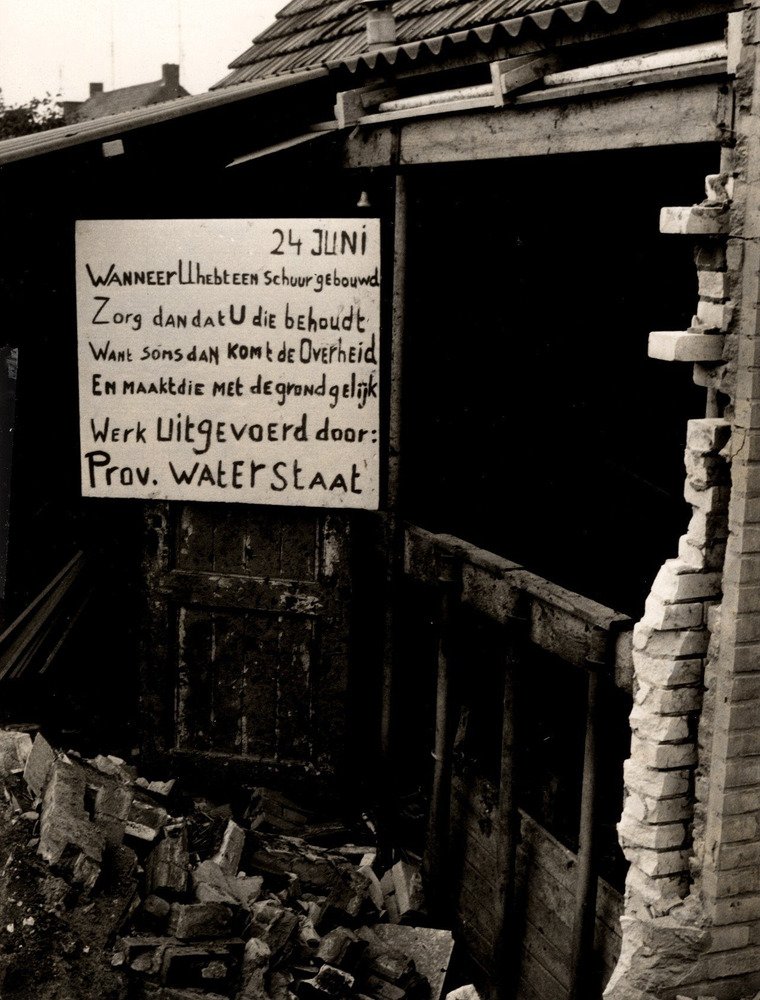 24 JUNI
WANNEER U hebt EEN Schuur gebouwd
Zorg dan dat U die behoudt
Want soms dan komt de Overheid
En maakt die met de grond gelijk
Werk Uitgevoerd door:
Prov. WATERSTAAT